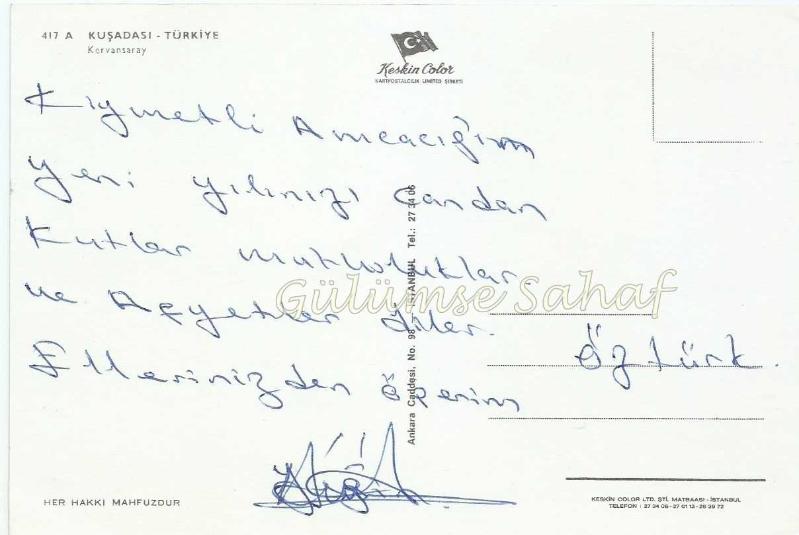 417 A KUŞADASI - TÜRKİYE
Kervansaray
Keskin Color
KARTPOSTALCILIK LIMITED ŞİRKETİ
Kıymetli Amcacığım
Yeni yılınızı Candan
Kutlar mutluluklar
ve Afyetler diler.
Ellerinizden öperim
Öztürk.
Ankara Caddesi, No. 98 İSTANBUL Tel.: 27 34 06
Gülümse Sahaf
HER HAKKI MAHFUZDUR
KESKİN COLOR LTD. ŞTİ. MATBAASI - İSTANBUL
TELEFON : 27 34 06 - 27 01 13 - 28 39 72